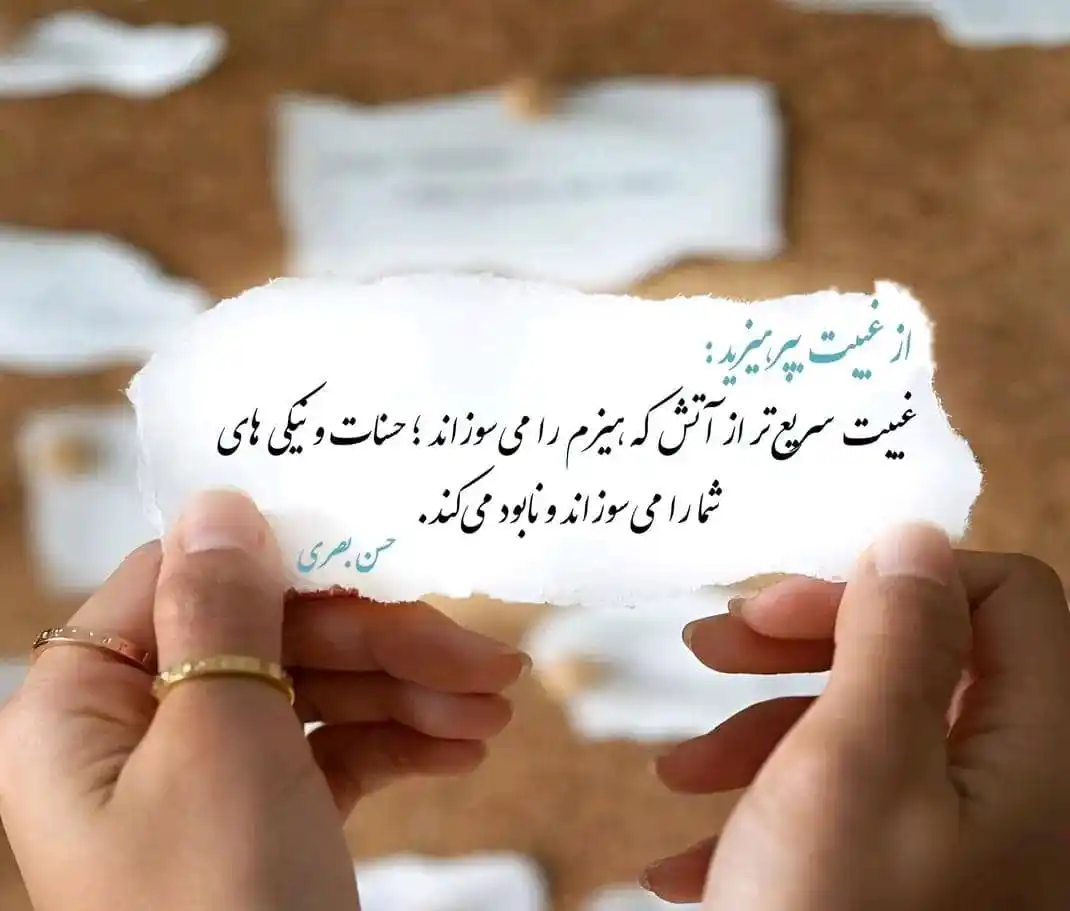 از غیبت بپرهیزید:
غیبت سریع تر از آتش که هیزم را می سوزاند؛ حسنات و نیکی های
شما را می سوزاند و نابود می کند.
حسن بصری